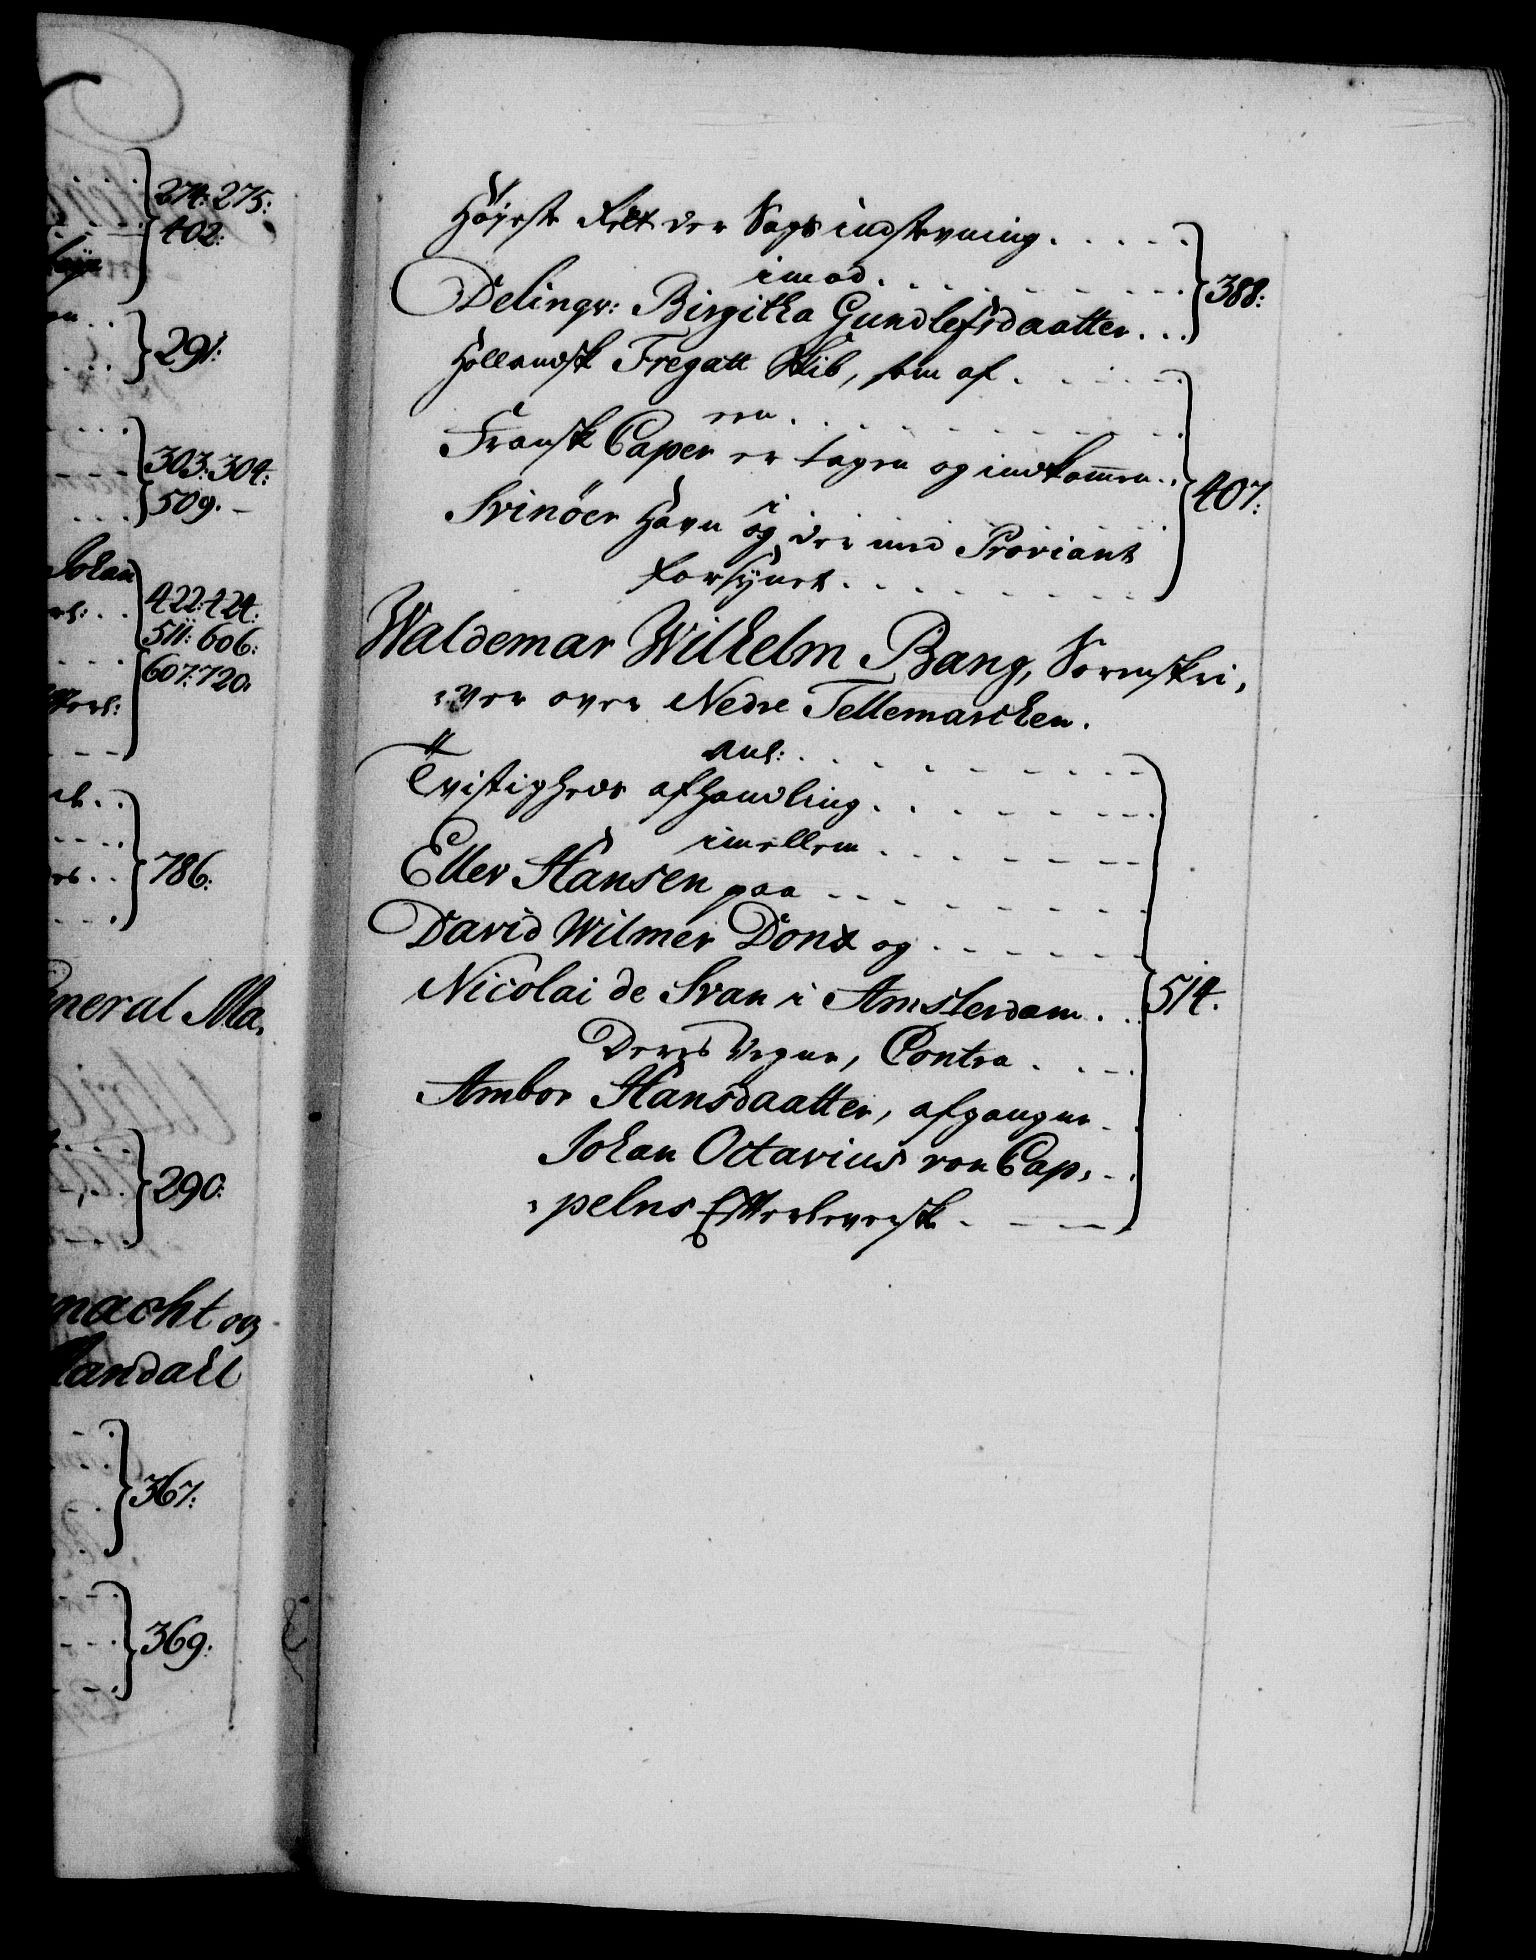 274: 275:
402:
291:
303: 304:
509.
Johan
422: 424:
511: 606:
607: 720:
786:
eneral Ma,
290:
macht og
Mandall
367:
369:
Höyeste Rett der Sags indstevning . . . . .
imod . . . . . . . . .
Delinqv: Birgitha Gundlefsdaatter . . . 388:
Hollandsk Fregatt Skib, som af . . . . .
een . . . . . . . . .
Fransk Caper er tagen og indkommen . .
i
Svinöer Havn og der med Proviant 407:
forsÿnet . . . . . . . .
Waldemar Wilhelm Bang, Sorenskri,
,ver over Nedre Tellemarcken.
anl: . . . . . . . .
Tvistigheds afhandling . . . . . . . .
imellem . . . . . . .
Eller Hansen paa . . . . . . . .
David Wilmer Donx og . . . . . .
Nicolai de Svan i Amsterdam . . 514.
Deres Vegne, Contra . . . .
Ambor Hansdaatter, afgangne .
Johan Octavius von Cap, . .
,pelns Efterleverske . . . .